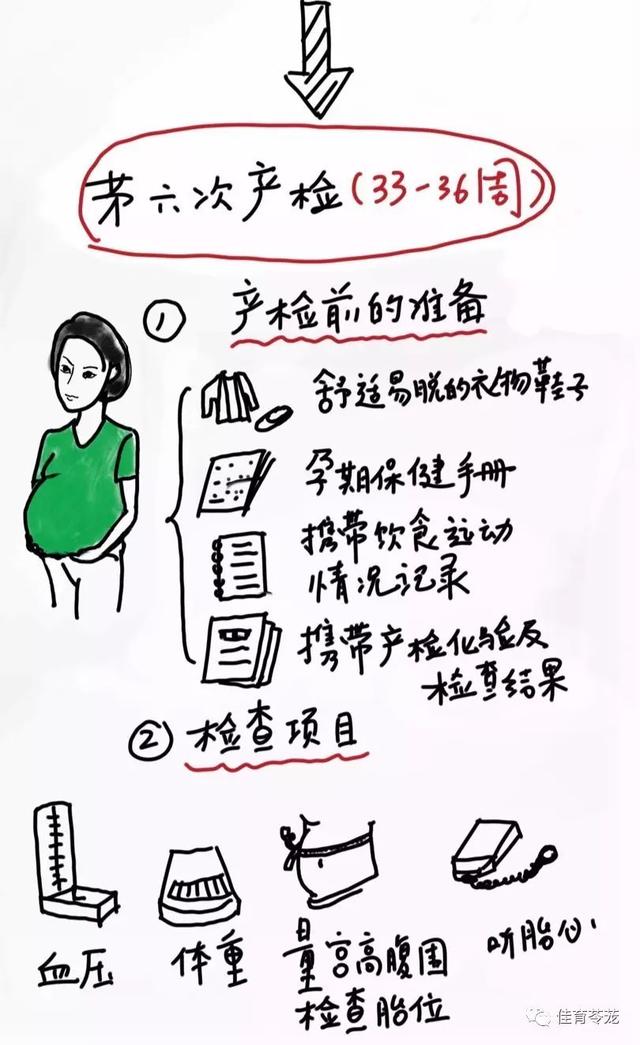 第六次产检(33-36周)
① 产检前的准备
舒适易脱的衣物鞋子
孕期保健手册
携带饮食运动
情况记录
携带产检化验及
检查结果
② 检查项目
血压
体重
量宫高腹围
检查胎位
听胎心
佳育苓茏